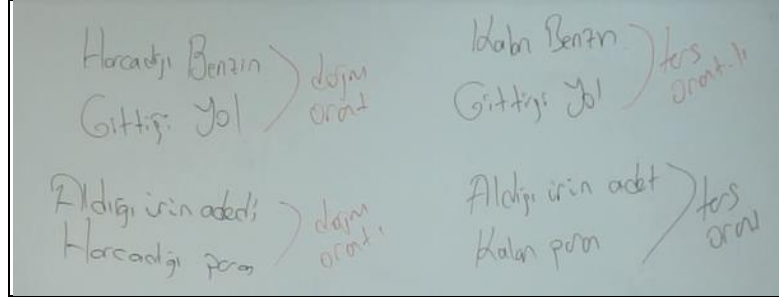 Harcadığı Benzin
Gittiği Yol
doğru
orantı
Kalan Benzin
Gittiği Yol
ters
orantılı
Aldığı ürün adedi
Harcadığı para
doğru
orantı
Aldığı ürün adet
Kalan para
ters
orantı